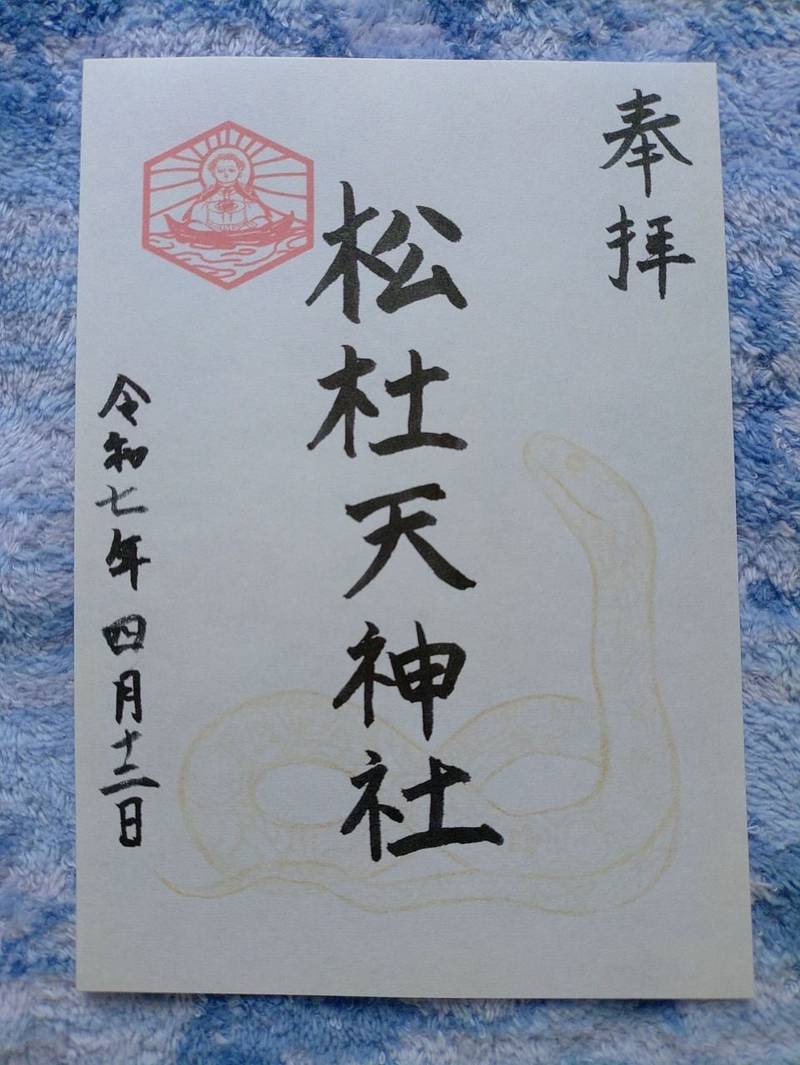 奉拝
松杜天神社
令和七年四月十二日